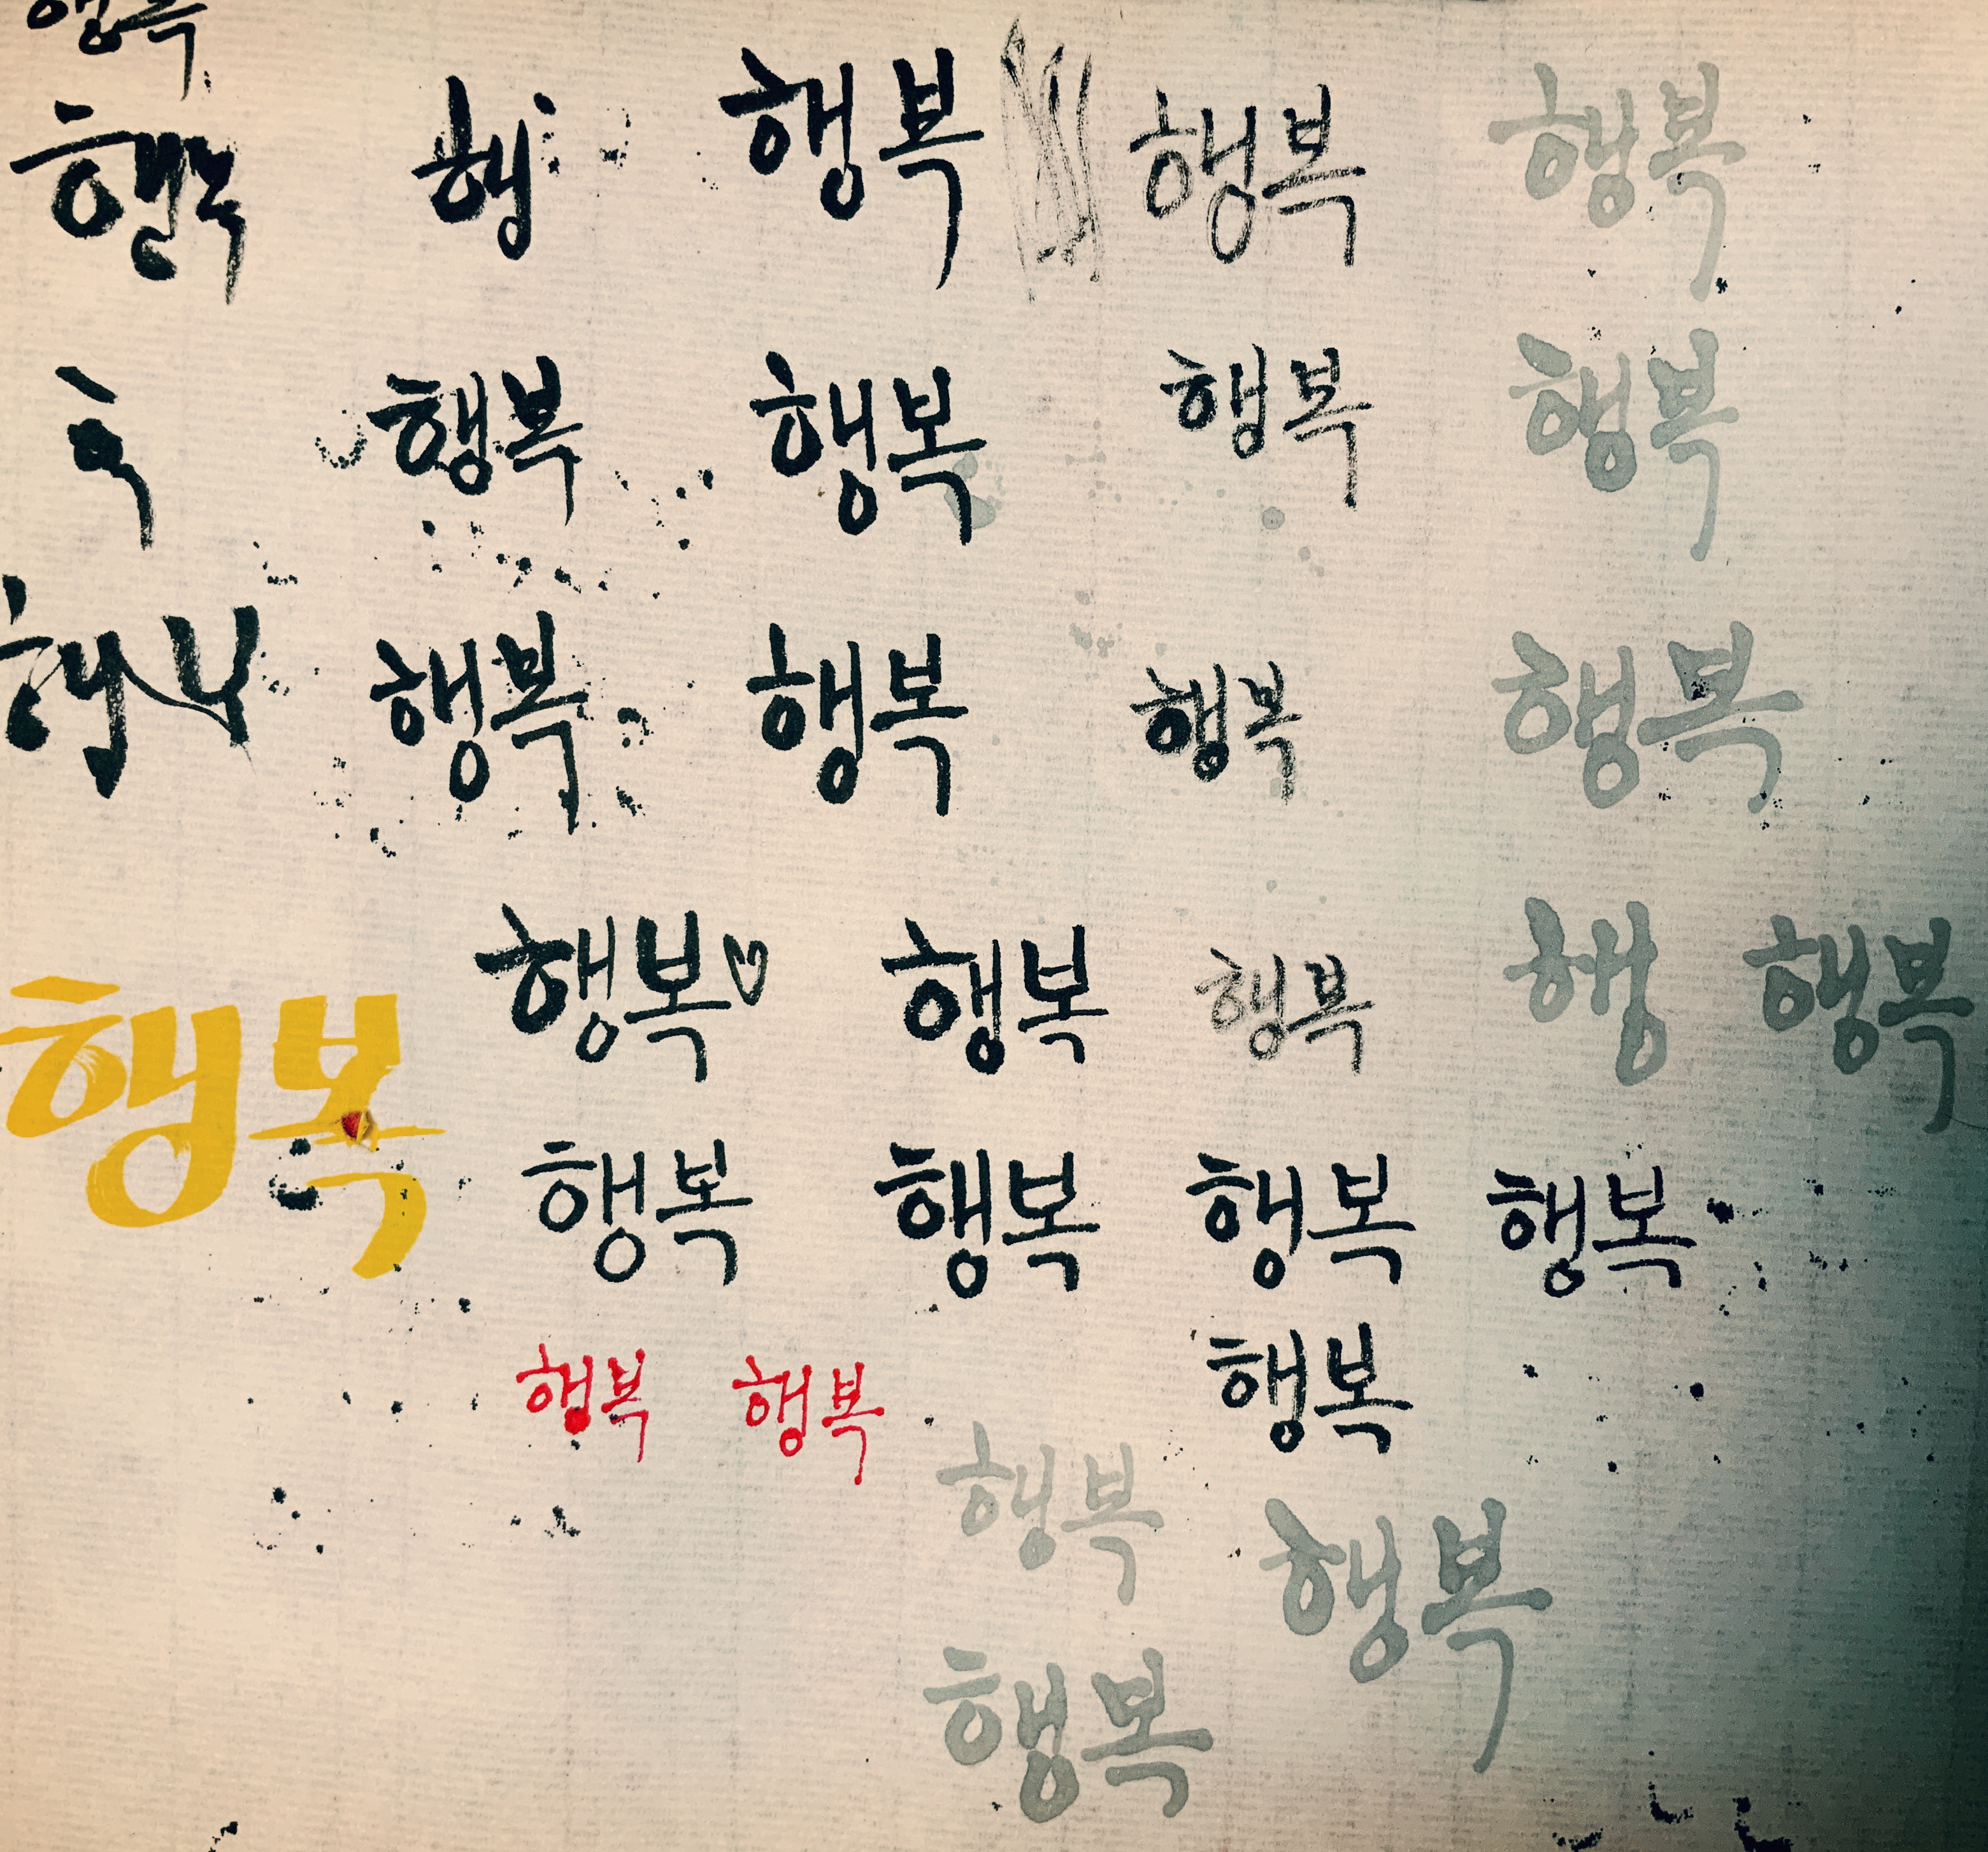 행복
행복 행 행복 행복 행복
행복 행복 행복 행복
행복 행복 행복 행복
행복 행복 행복 행 행복
행복
행복 행복 행복 행복
행복 행복 행복
행복
행복
행복